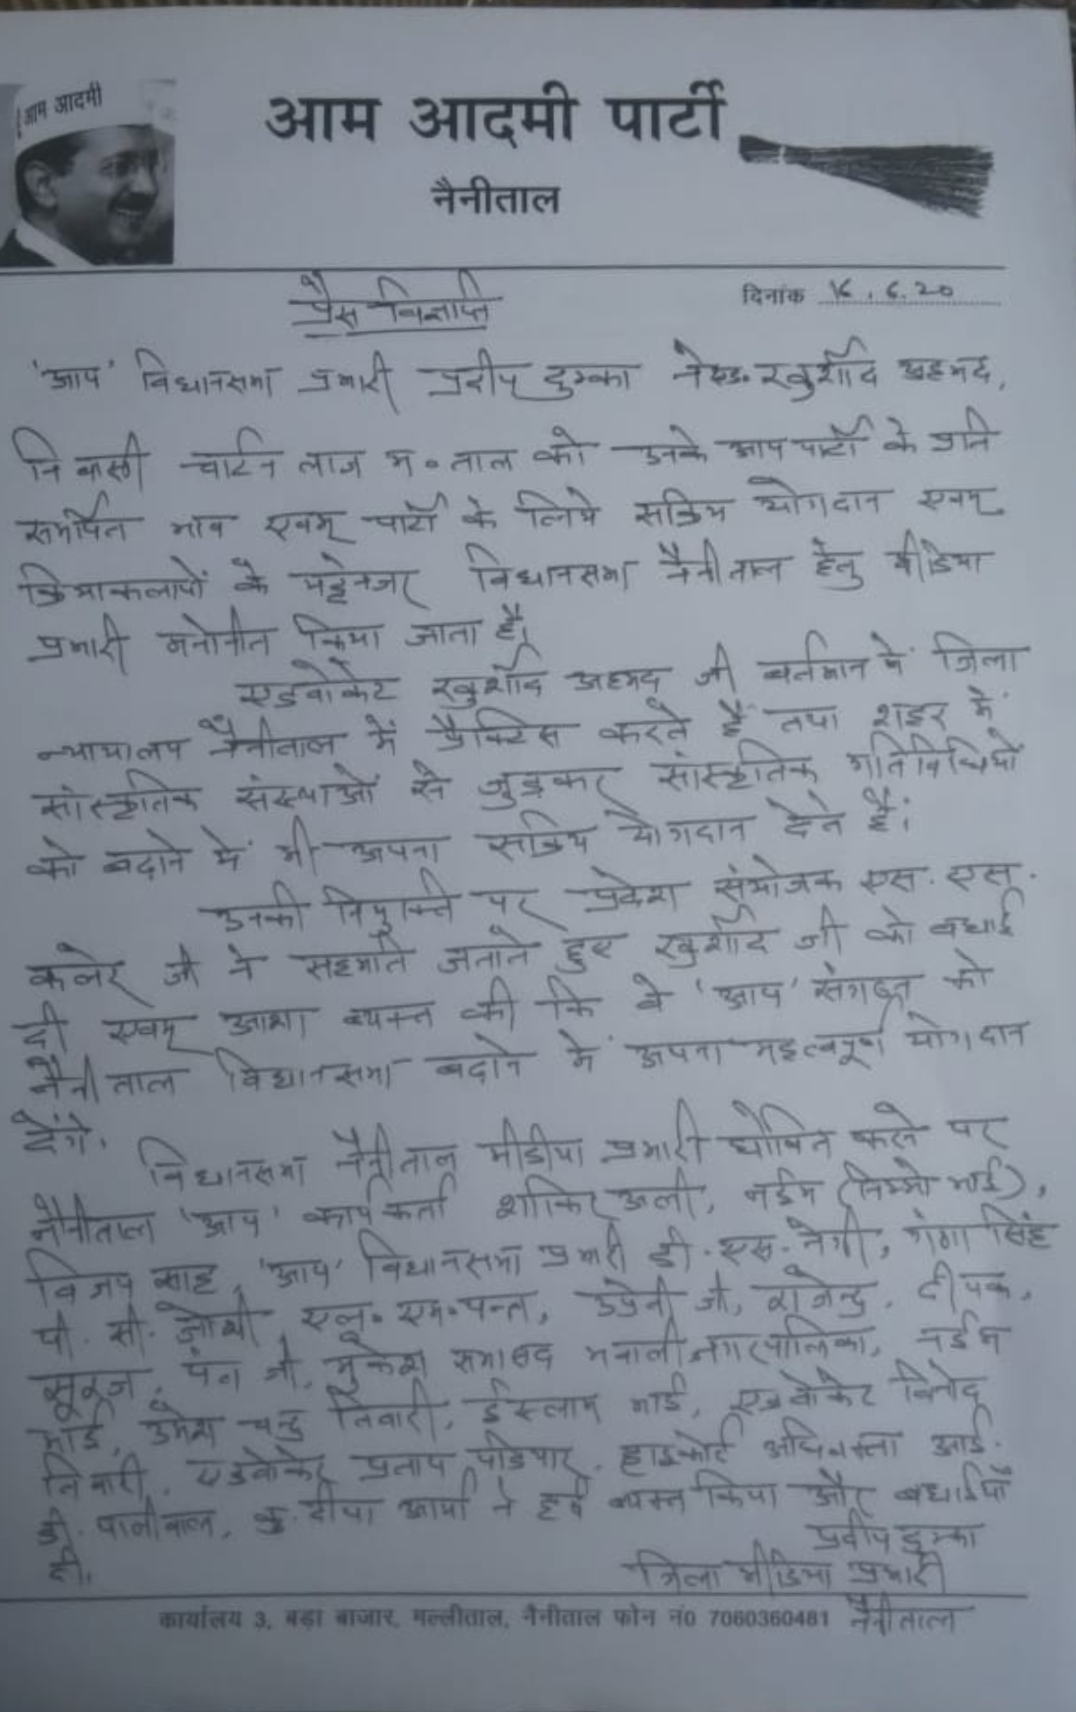 आम आदमी
आम आदमी पार्टी
नैनीताल
दिनांक 16.6.20
प्रैस विज्ञप्ति
'आप' विधानसभा प्रभारी प्रदीप दुम्का ने एड० खुर्शीद अहमद,
निवासी चार्टन लाज म०ताल को उनके आप पार्टी के प्रति
समर्पित भाव एवम् पार्टी के लिये सक्रिय योगदान एवम्
क्रियाकलापों के मद्देनजर विधानसभा नैनीताल हेतु मीडिया
प्रभारी मनोनीत किया जाता है।
एडवोकेट खुर्शीद अहमद जी वर्तमान में जिला
न्यायालय नैनीताल में प्रैक्टिस करते हैं तथा शहर में
सांस्कृतिक संस्थाओं से जुड़कर सांस्कृतिक गतिविधियों
को बढ़ाने में भी अपना सक्रिय योगदान देते हैं।
उनकी नियुक्ति पर प्रदेश संयोजक एस. एस.
कलेर जी ने सहमति जताते हुए खुर्शीद जी को बधाई
दी एवम् आशा व्यक्त की कि वे 'आप' संगठन को
नैनीताल विधानसभा बढ़ाने में अपना महत्वपूर्ण योगदान
देंगे.
विधानसभा नैनीताल मीडीया प्रभारी घोषित करने पर
नैनीताल 'आप' कार्यकर्ता शाकिर अली, नईम (निम्मो भाई),
विजय साह, 'आप' विधानसभा प्रभारी डी. एस. नेगी, गंगा सिंह
पी. सी. जोशी, एल० एम० पन्त, उप्रेती जी, राजेन्द्र, दीपक,
सूरज, पंत जी, मुकेश सभासद भवाली नगरपालिका, नईम
भाई, उमेश चन्द्र तिवारी, ईस्लाम भाई, एडवोकेट विनोद
तिवारी, एडवोकेट प्रताप पडियार, हाइकोर्ट अधिवक्ता आई.
डी. पालीवाल, कु. दीपा आर्या ने हर्ष व्यक्त किया और बधाईयाँ
दी.
प्रदीप दुम्का
जिला मीडिया प्रभारी
नैनीताल
कार्यालय 3, बड़ा बाजार, मल्लीताल, नैनीताल फोन नं0 7060360481